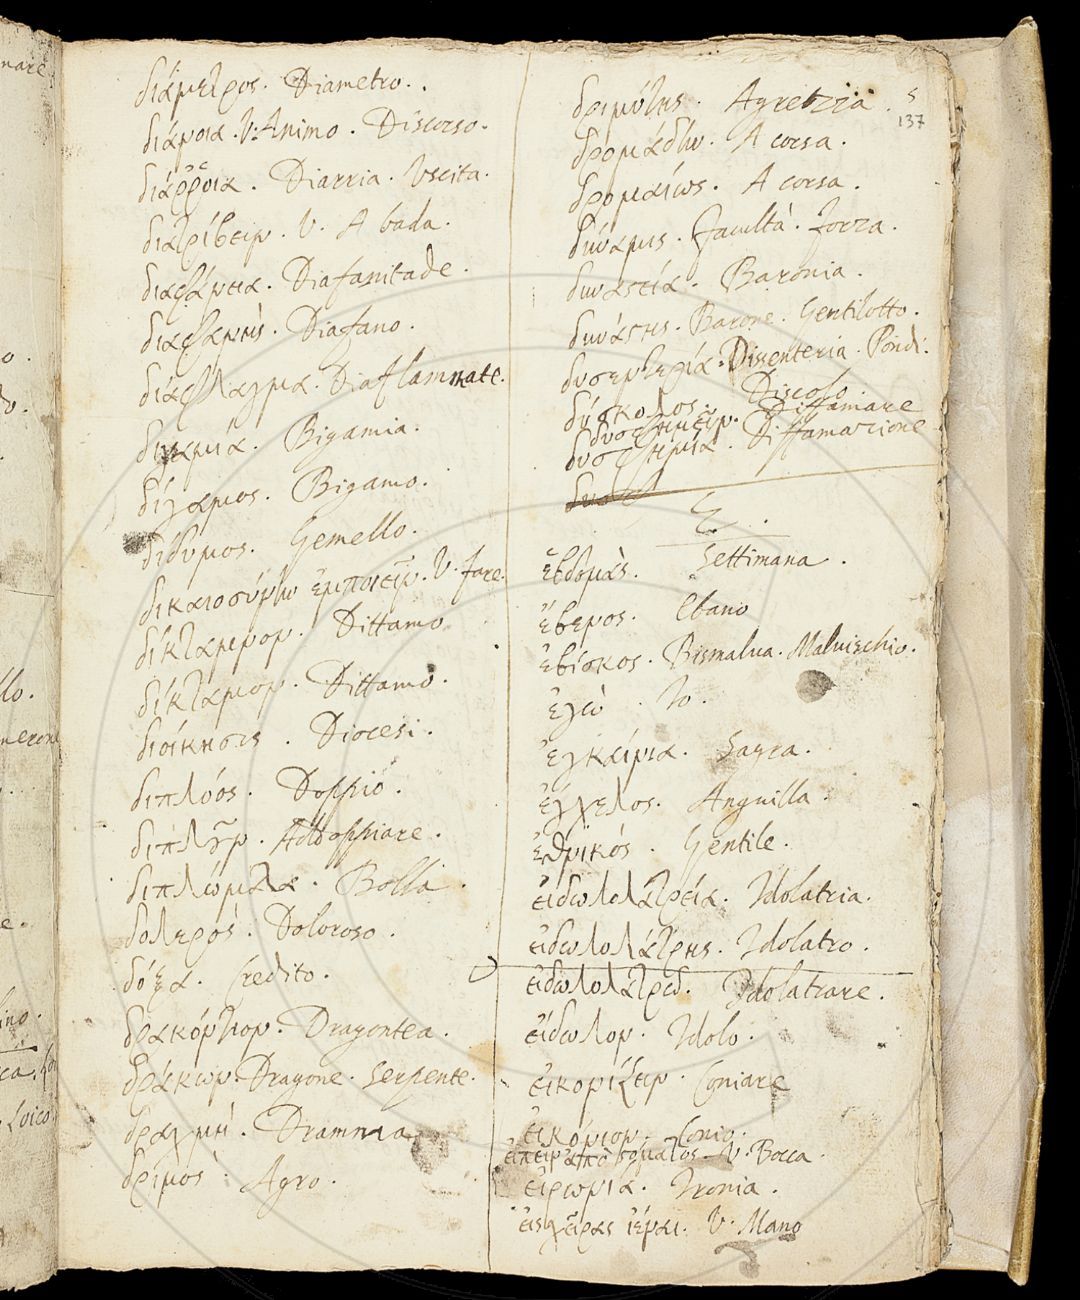 διάμετρος. Diametro.
διάνοια. V. Animo. Discorso.
διάῤῥοια. Diarria. Uscita.
διατρίβειν. V. A bada.
διαφάνεια. Diafanitade.
διαφανὴς. Diafano.
διάφλαγμα. Diaflammate.
διγαμία. Bigamia.
δίγαμος. Bigamo.
δίδυμος. Gemello.
δικαιοσύνην ἐμποιεῖν. V. Fare.
δίκταμενον. Dittamo
δίκταμον. Dittamo.
διοίκησις. Diocesi.
διπλόος. Doppio.
διπλοῦν. Addoppiare.
διπλώματα. Bolla.
δολερὸς. Doloroso.
δόξα. Credito.
δρακόντιον. Dragontea.
δράκων. Dragone. Serpente.
δραχμὴ. Dramma
δριμὺς. Agro.
δριμύτης. Agrezza. 5
137
δρομάδην. A corsa.
δρομαίως. A corsa.
δύναμις. Facultà. Forza.
δυναστεία. Baronia.
δυνάστης. Barone. Gentilotto.
δυσεντερία. Disenteria. Pondi.
δύσκολος. Discolo
δυσφημεῖν. Diffamare
δυσφημία. Diffamazione
δυσ
E.
ἑβδομὰς. Settimana.
ἔβενος. Ebano
ἐβίσκος. Bismalua. Maluischio.
ἐγὼ. Io.
ἐγκαίνια. Sagra.
ἔγχελος. Anguilla.
ἐθνικός. Gentile.
εἰδωλολατρεία. Idolatria.
εἰδωλολάτρης. Idolatro.
εἰδωλολατρεῖν. Idolatrare.
εἴδωλον. Idolo.
εἰκονίζειν. Coniare
εἰκόνιον. Conio.
εἰπεῖν ἀπὸ στόματος. V. Bocca.
εἰρωνία. Ironia.
εἰς χεῖρας ἰέναι. V. Mano